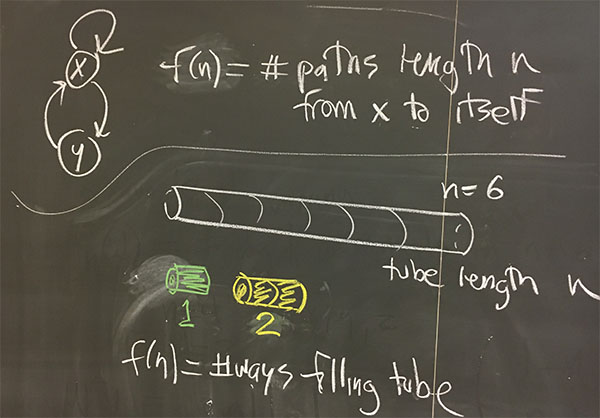 x
f(n) = # paths length n
from x to itself
y
n=6
tube length n
1
2
f(n) = #ways filling tube